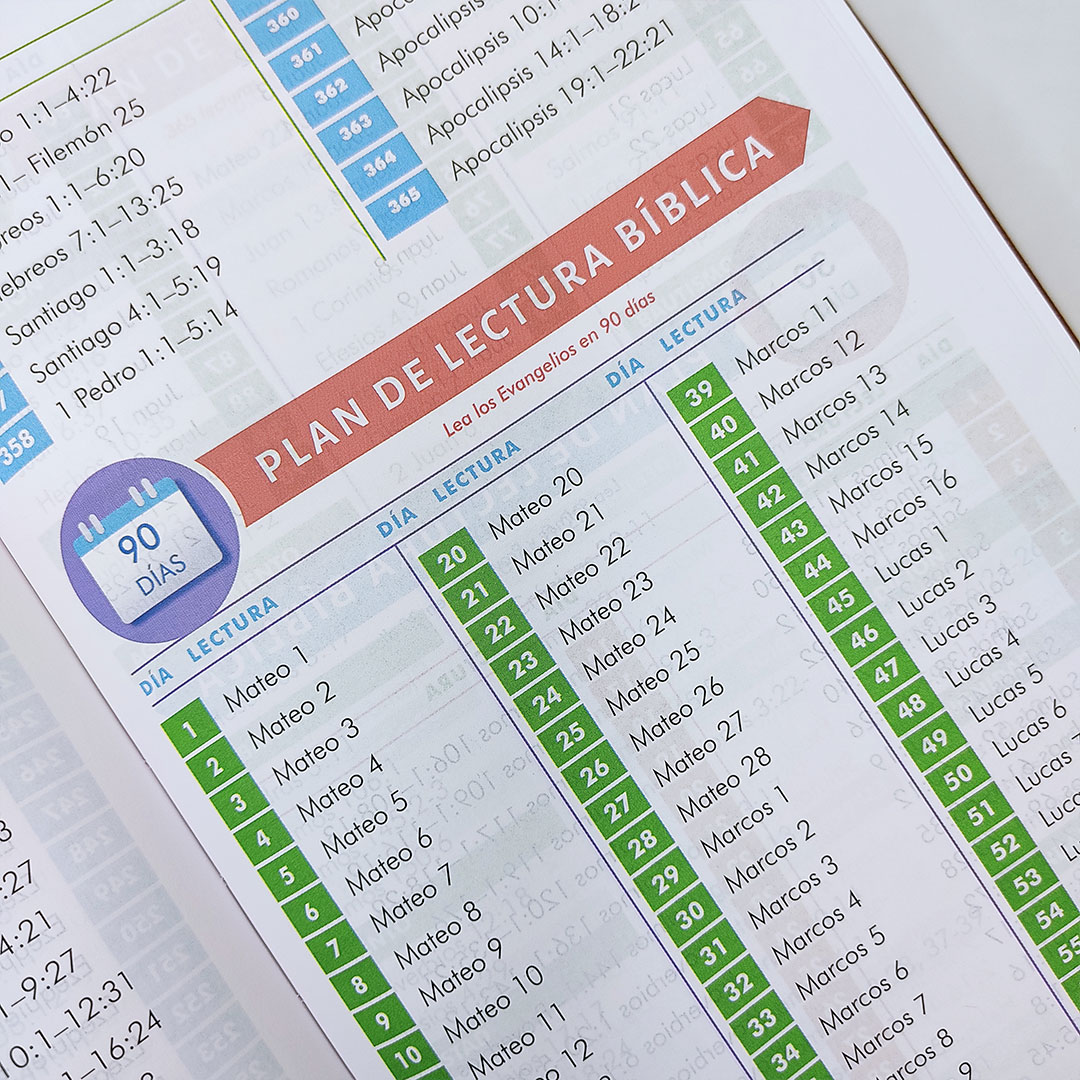 1:1–4:22
1– Filemón 25
1:1–6:20
ebreos 7:1–13:25
Santiago 1:1–3:18
Santiago 4:1–5:19
358 1 Pedro 1:1–5:14
360
361 Apoc
362 Apocalipsis
363 Apocalipsis 10:1
364 Apocalipsis 14:1–18:2
365 Apocalipsis 19:1–22:21
PLAN DE LECTURA BÍBLICA
Lea los Evangelios en 90 días
90
DÍAS
DÍA LECTURA
1 Mateo 1
2 Mateo 2
3 Mateo 3
4 Mateo 4
5 Mateo 5
6 Mateo 6
7 Mateo 7
8 Mateo 8
9 Mateo 9
10 Mateo 10
Mateo 11
12
DÍA LECTURA
20 Mateo 20
21 Mateo 21
22 Mateo 22
23 Mateo 23
24 Mateo 24
25 Mateo 25
26 Mateo 26
27 Mateo 27
28 Mateo 28
29 Marcos 1
30 Marcos 2
31 Marcos 3
32 Marcos 4
33 Marcos 5
34 Marcos 6
Marcos 7
arcos 8
9
DÍA LECTURA
39 Marcos 11
40 Marcos 12
41 Marcos 13
42 Marcos 14
43 Marcos 15
44 Marcos 16
45 Lucas 1
46 Lucas 2
47 Lucas 3
48 Lucas 4
49 Lucas 5
50 Lucas 6
51 Lucas
52 Luca
53 Lu
54
55
:27
4:21
1–9:27
0:1–12:31
1–16:24